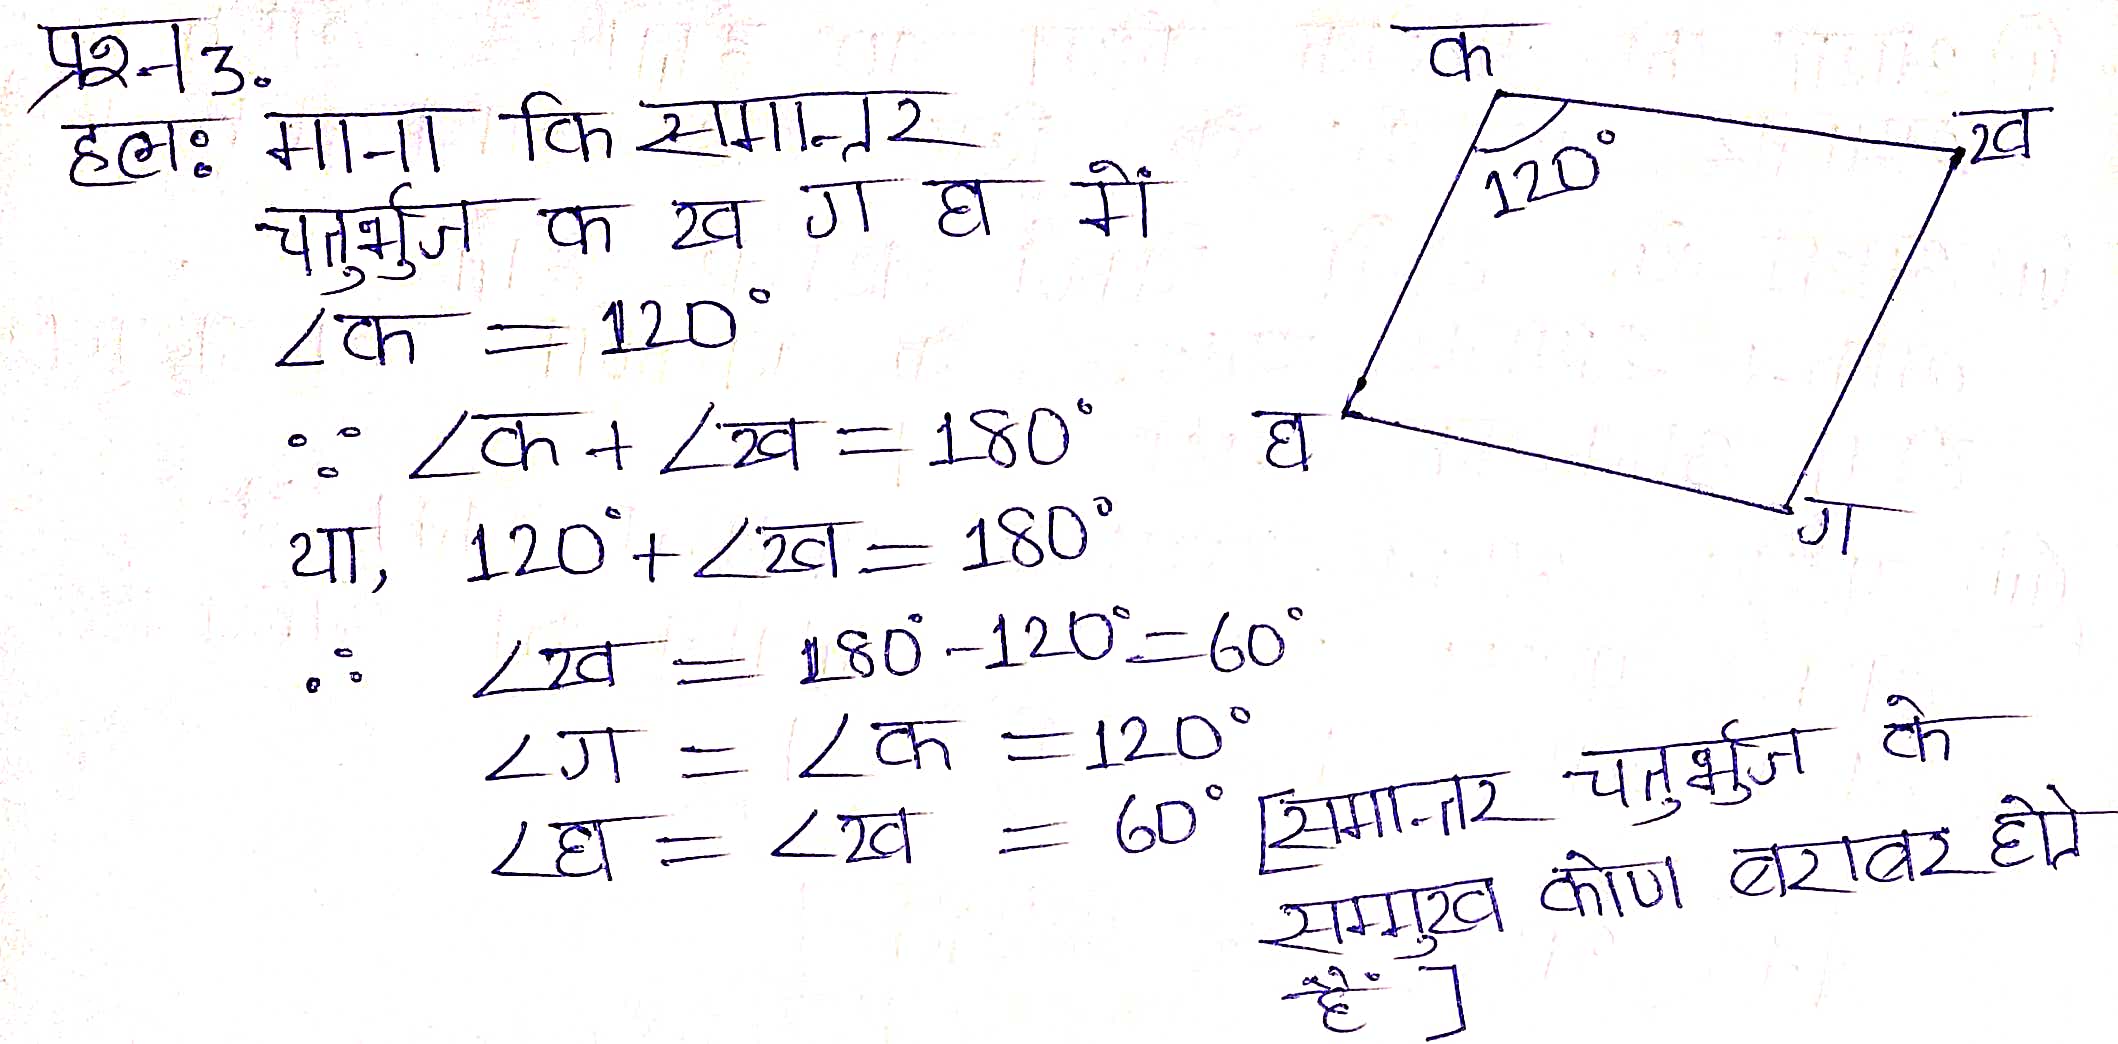 प्रश्न 3.
हल: माना कि समान्तर
चतुर्भुज क ख ग घ में
∠क = 120°
∵ ∠क + ∠ख = 180°
या, 120° + ∠ख = 180°
∴ ∠ख = 180° - 120° = 60°
∠ग = ∠क = 120°
∠घ = ∠ख = 60° [समान्तर चतुर्भुज के
सम्मुख कोण बराबर होते
हैं ]
क
ख
120°
घ
ग